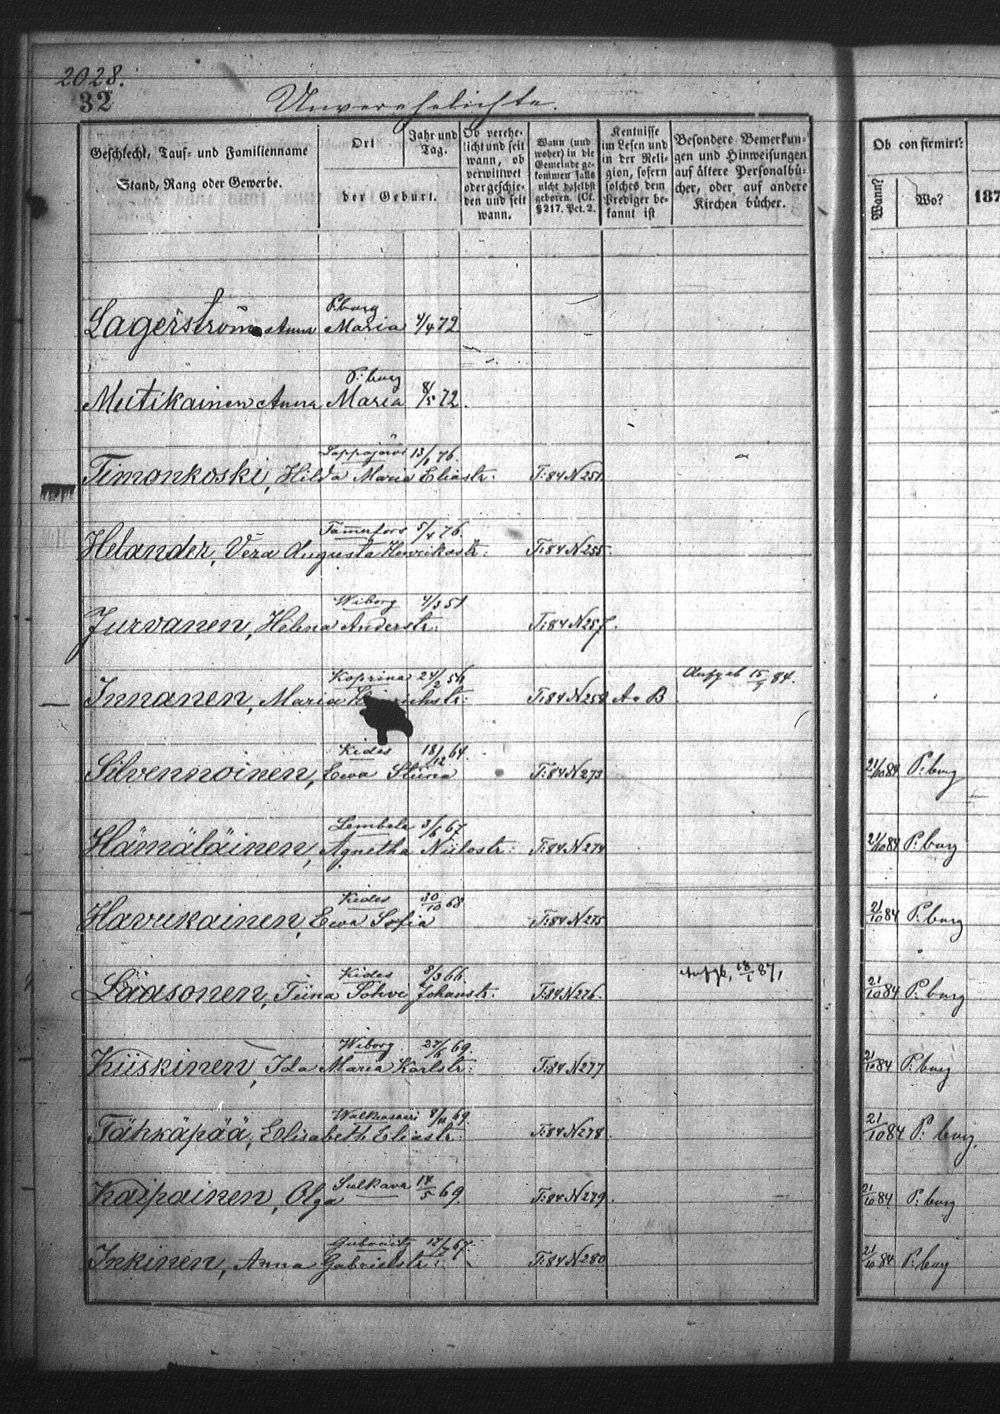 2028.
32
Unverehelichte.
Geschlecht, Tauf- und Familienname
Stand, Rang oder Gewerbe.
Ort
Jahr und Tag.
der Geburt.
Ob verehe-
licht und seit
wann, ob
verwittwet
oder geschie-
den und seit
wann.
Wann (und
woher) in die
Gemeinde ge-
kommen falls
nicht daselbst
geboren. (Cf.
§ 217. Pct. 2.
Kentnisse
im Lesen und
in der Reli-
gion, sofern
solches dem
Prediger be-
kannt ist
Besondere Bemerkun-
gen und Hinweisungen
auf ältere Personalbü-
cher, oder auf andere
Kirchen bücher.
Ob confirmirt:
Wann?
Wo?
187
P:burg
Lagerström Anna Maria 4/4 72
P:burg
Mutikainen Anna Maria 8/5 72.
Lappajärvi 13/1 76.
Timonkoski, Hilda Maria Eliastr: T:84 N 251
5/4 76.
Helander, Vera Augusta Henrikstr: T:84 N 255.
Wiborg 4/3 51
Jurvanen, Helena Anderstr: T:84 N 257.
Koprina 24/2 56 Aufgeb 15/9 84.
Innanen, Maria T:84 N 258 A. B
Kides 18/12 64.
Silvennoinen, Ewa Stiina T:84 N 273 21/10 84 P:burg
Lembala 3/6 67
Hämäläinen, Agnetha Niilostr: T:84 N 274 21/10 84 P:burg
Kides 30/10 68
Havukainen, Ewa Sofia T:84 N 275 21/10 84 P:burg
Kides 8/3 66. 18/1 87,
Lääsonen, Tiina Sohvi Johanstr. T:84 N 276. 21/10 84 P:burg
Wiborg 27/6 69.
Kiiskinen, Ida Maria Karlstr: T:84 N 277 21/10 84 P:burg
Walkeasaari 8/11 69.
Tähkäpää, Elisabeth Eliastr: T:84 N 278. 21/10 84 P:burg.
Sulkava 14/5 69.
Kaipainen, Olga T:84 N 279. 21/10 84 P:burg
12/7 67.
Inkinen, Anna Gabrielstr: T:84 N 280 21/10 84 P:burg